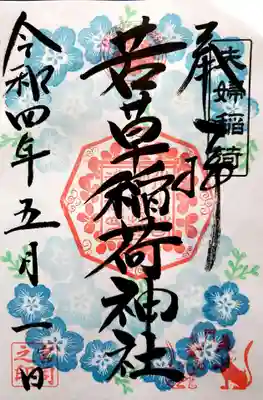 夫婦稲荷
奉拝
若草稲荷神社
令和四年五月一日